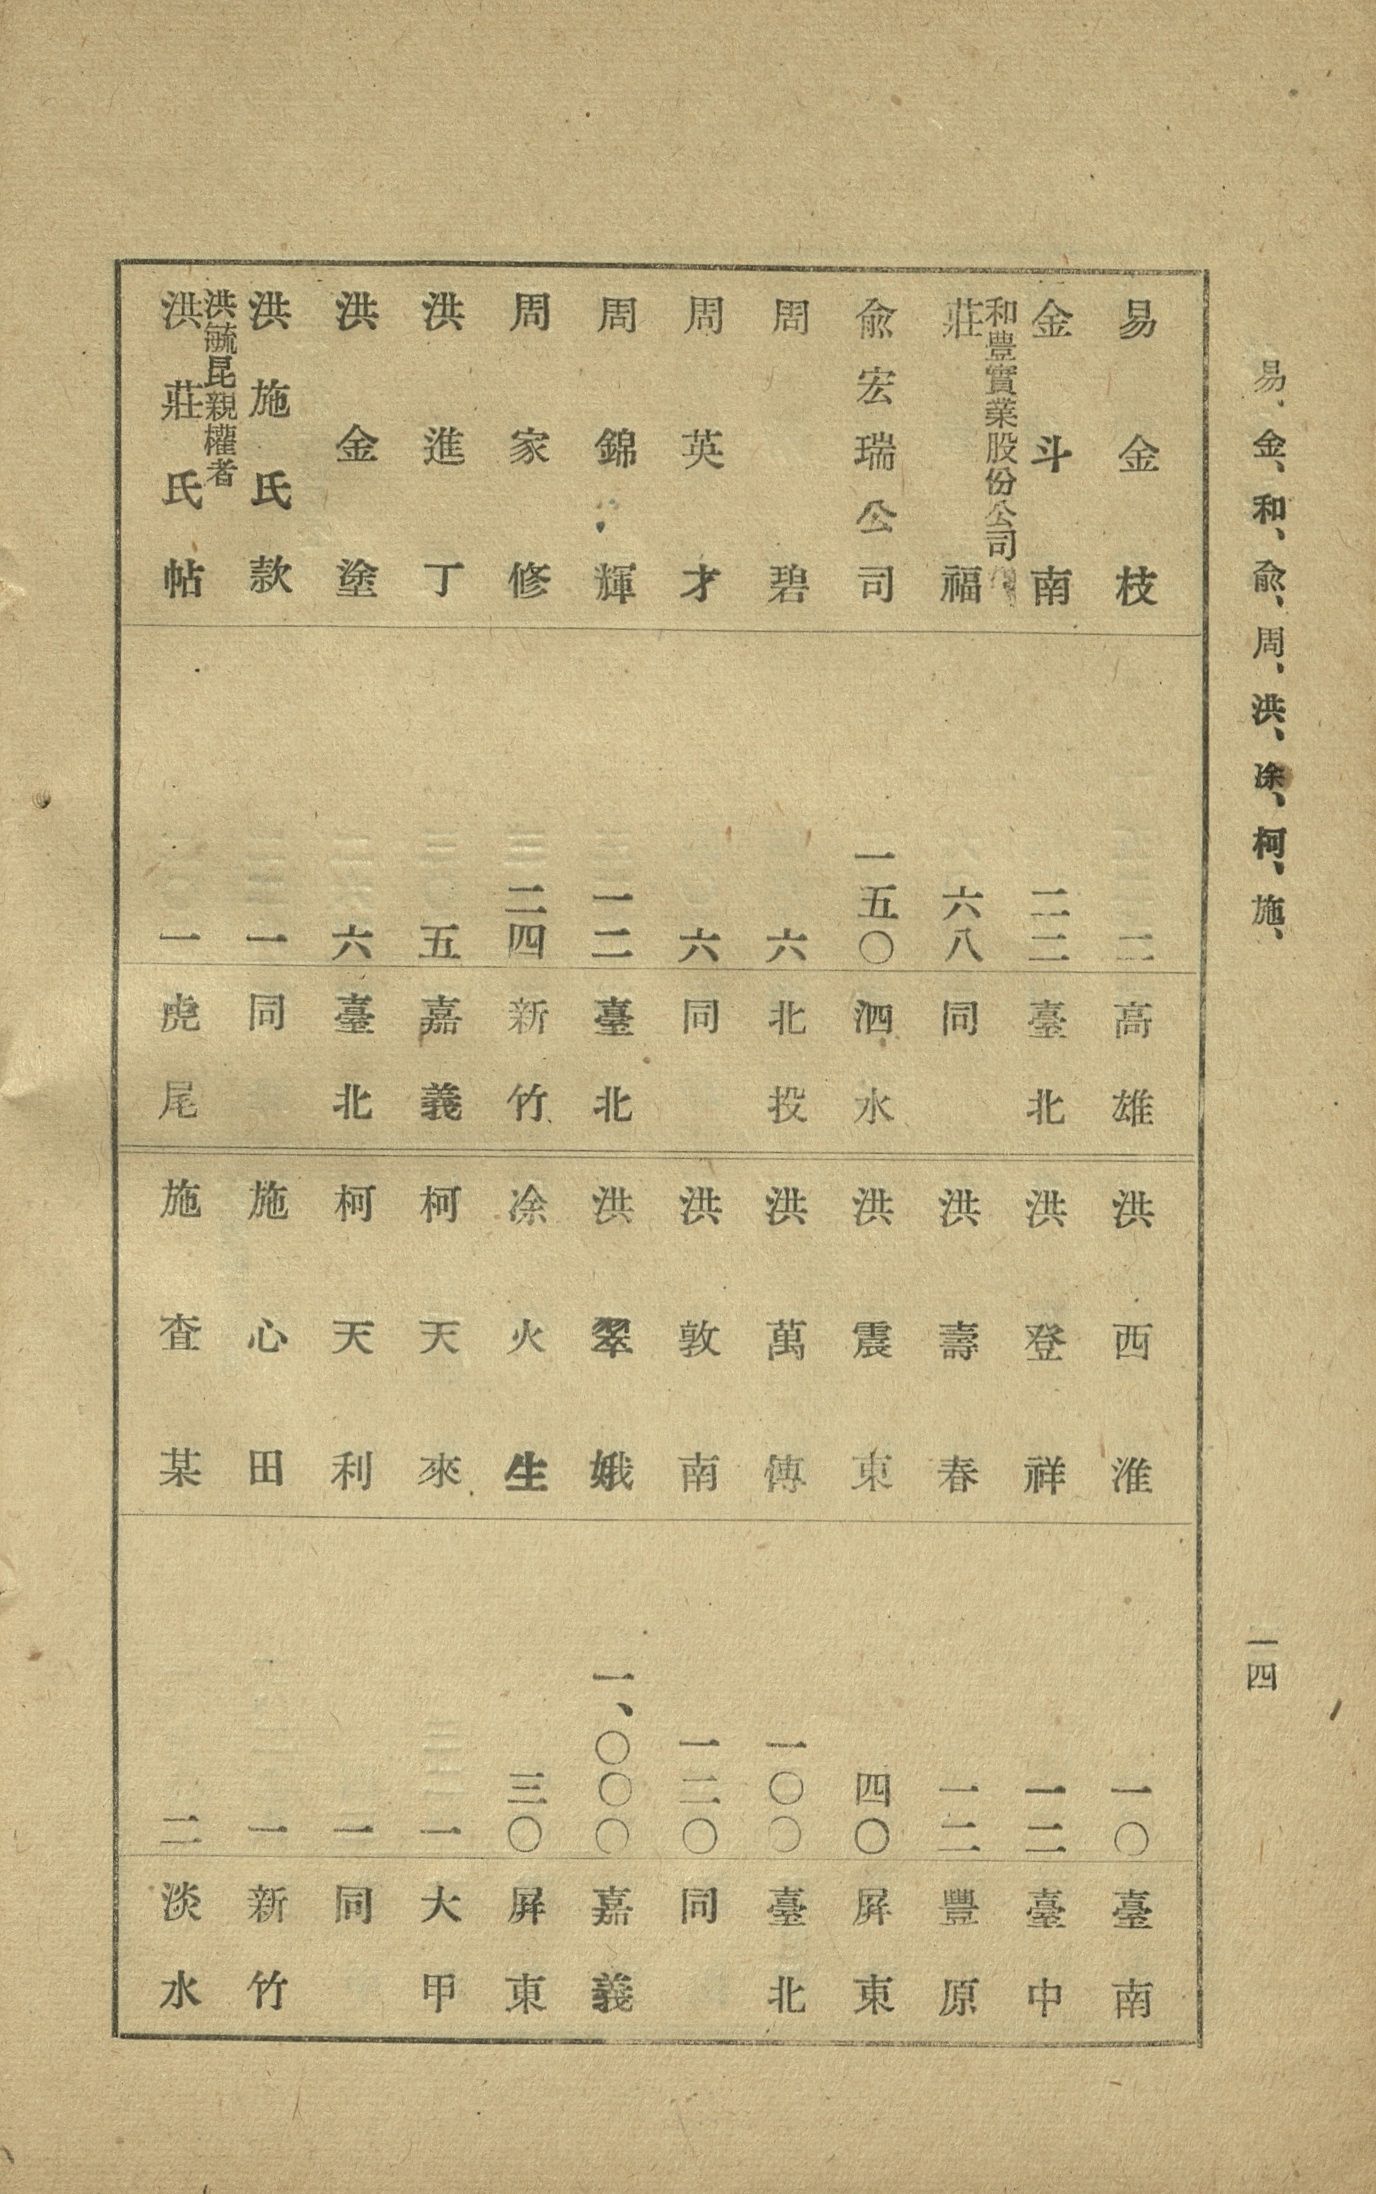 易、金、和、兪、周、洪、涂、柯、施、
一四
易金枝 二 高雄
金斗南 二二 臺北
和豐實業股份公司
莊福 六八 同
兪宏瑞公司 一五〇 泗水
周碧 六 北投
周英才 六 同
周錦輝 一二 臺北
周家修 二四 新竹
洪進丁 五 嘉義
洪金塗 六 臺北
洪施氏款 一 同
洪毓昆親權者
洪莊氏帖 一 虎尾
洪西淮 一〇 臺南
洪登祥 一二 臺中
洪壽春 一二 豐原
洪震東 四〇 屛東
洪萬傳 一〇〇 臺北
洪敦南 一二〇 同
洪翠娥 一、〇〇〇 嘉義
涂火生 三〇 屛東
柯天來 一 大甲
柯天利 一 同
施心田 一 新竹
施查某 二 淡水